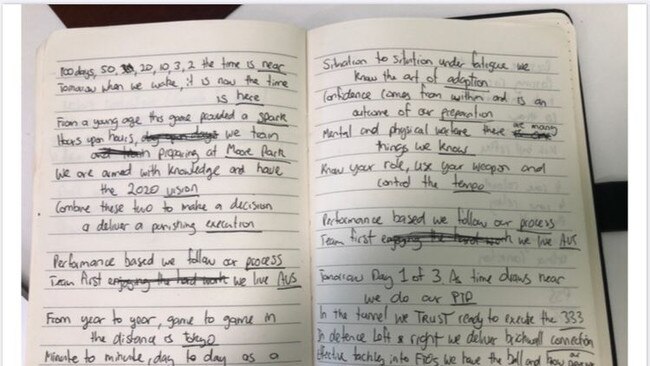 100 days, 50, 20, 10, 3, 2 the time is near
Tomorrow when we wake, it is now the time
is here
From a young age this game provided a spark
Hours upon hours, we train
preparing at Moore Park
We are armed with knowledge and have
the 2020 vision
Combine these two to make a decision
a deliver a punishing execution
Performance based we follow our process
Team first enjoying the hard work we live AUS
From year to year, game to game in
the distance is tokyo
Minute to minute, day to day as a
Situation to situation under fatigue we
know the art of adaption
Confidence comes from within and is an
outcome of our preparation
Mental and physical warfare these are many
things we know
Know your role, use your weapon and
control the tempo
Performance based we follow our process
Team first enjoying the hard work we live AUS
Tomorrow Day 1 of 3. As time draws near
we do our PTD
In the tunnel we TRUST ready to execute the 333
In defence left & right we deliver brickwall connection
Effective tackling into we have the ball and now are